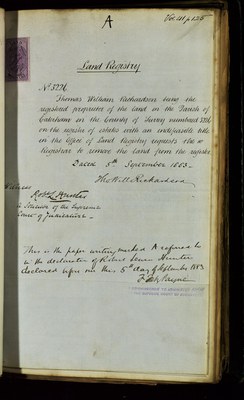 A
Land Registry
No. 3226
Thomas William Richardson being the
registered proprietor of the land in the Parish of
Caterham in the County of Surrey numbered 3226
on the register of estates with an indefeasible title
in the Office of Land Registry requests the
Registrar to remove the land from the register
Dated 5th September 1883
Thos. Will. Richardson
Witness
Robt. L. Hunter
A Solicitor of the Supreme
Court of Judicature
This is the paper writing marked A referred to
in the declaration of Robert Lewin Hunter
declared before me this 5th day of September 1883